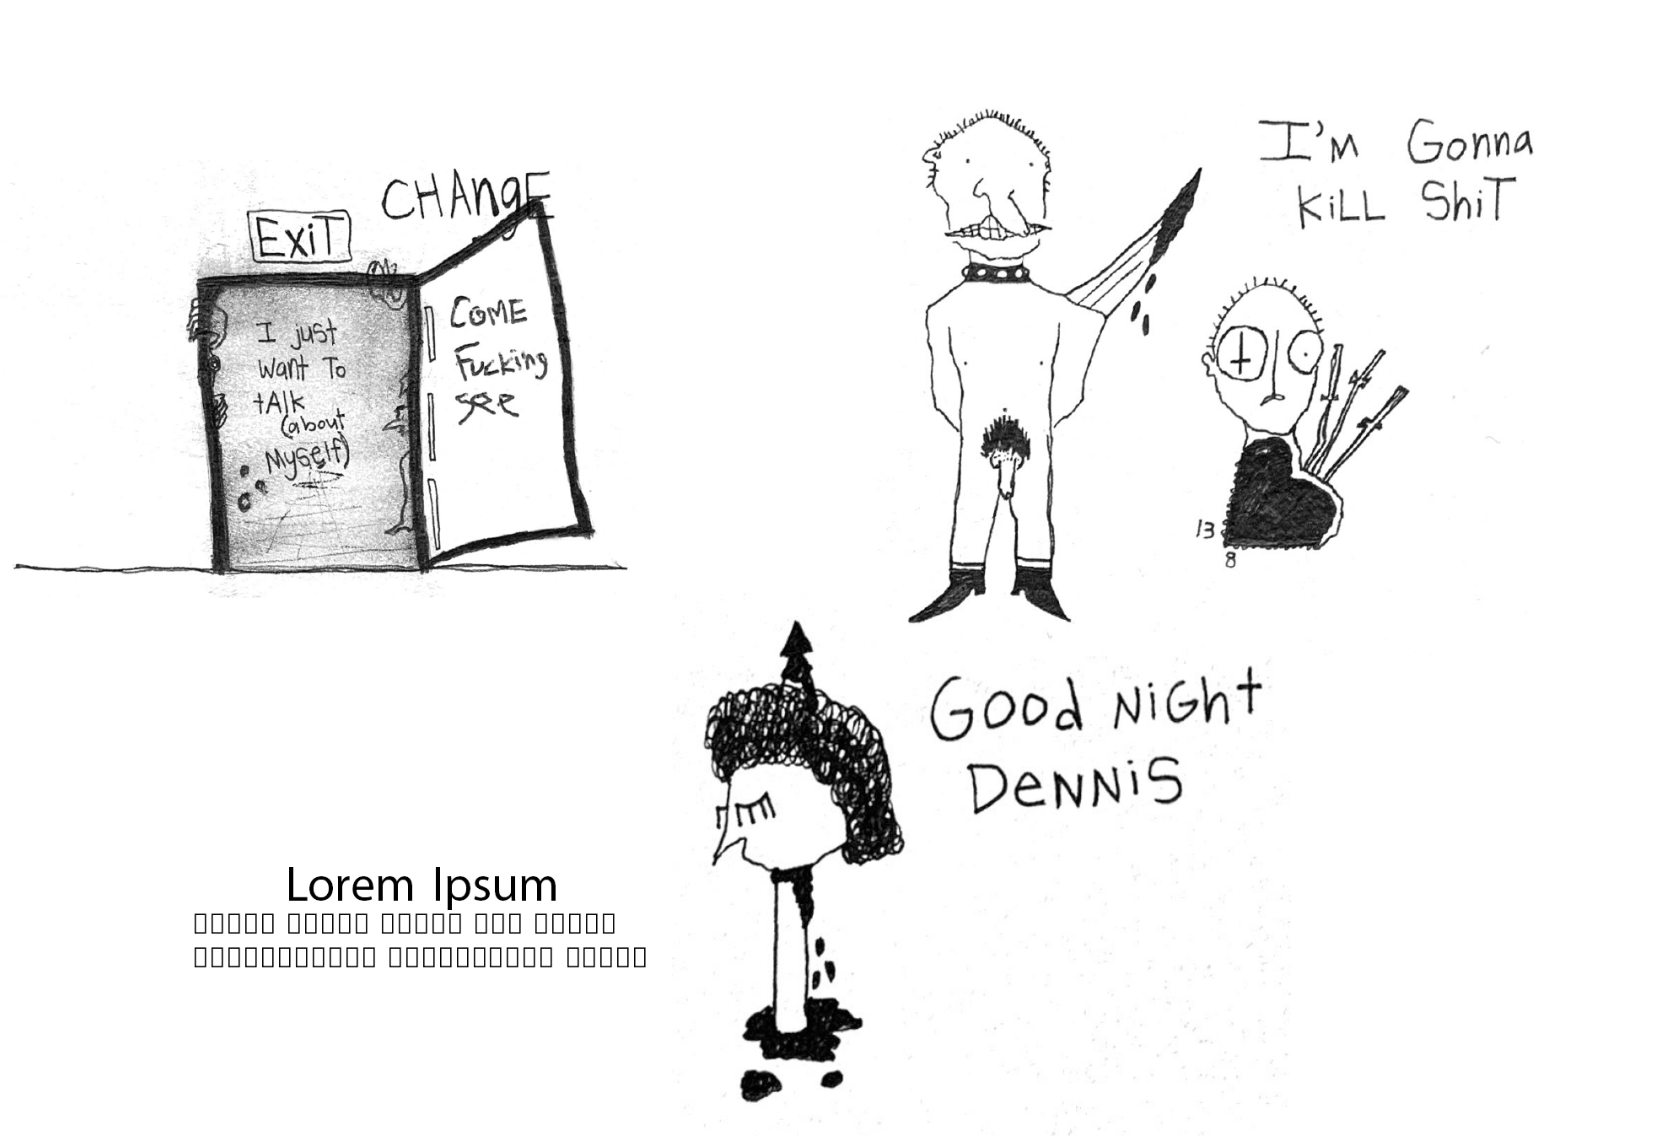 CHAngE
ExiT
I just
want To
tAlk
(about
Myself)
COME
Fucking
see
I'm Gonna
KiLL ShiT
13
8
Good NiGht
DeNNiS
Lorem Ipsum